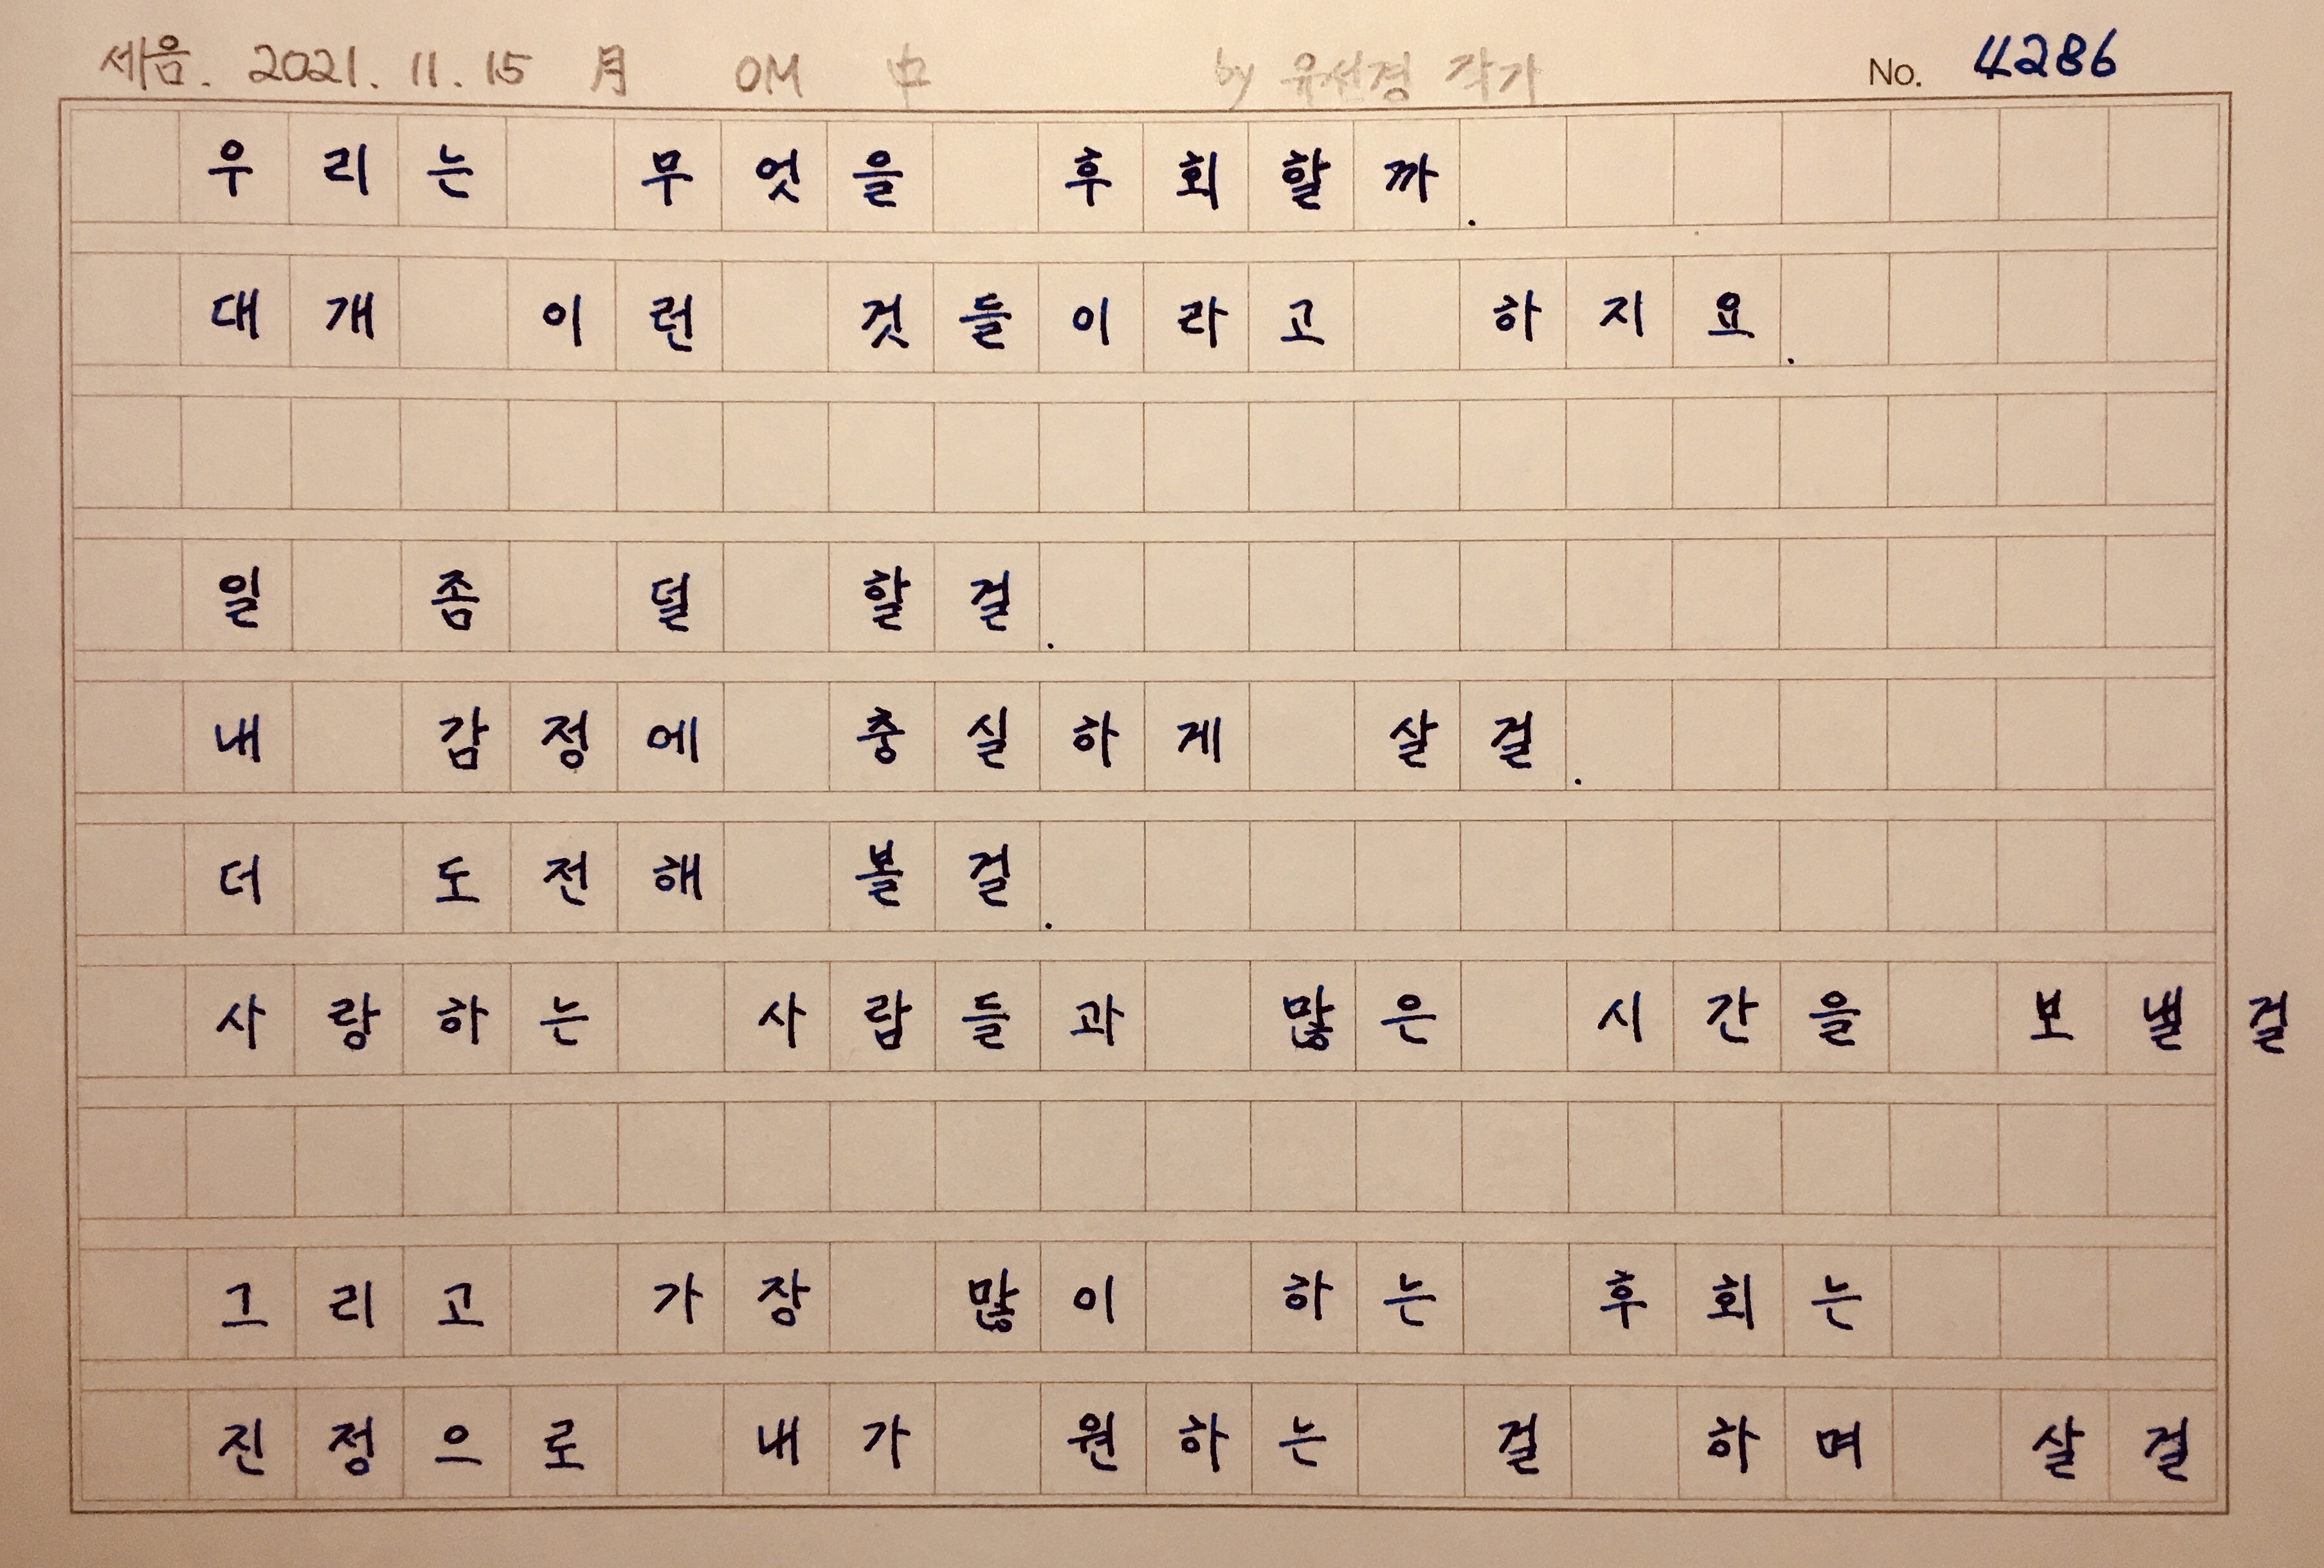 세음. 2021. 11. 15 月 OM 中 by 유선경 작가 No. 4286
우리는 무엇을 후회할까.
대개 이런 것들이라고 하지요.
일 좀 덜 할걸.
내 감정에 충실하게 살걸.
더 도전해 볼걸.
사랑하는 사람들과 많은 시간을 보낼걸
그리고 가장 많이 하는 후회는
진정으로 내가 원하는 걸 하며 살걸